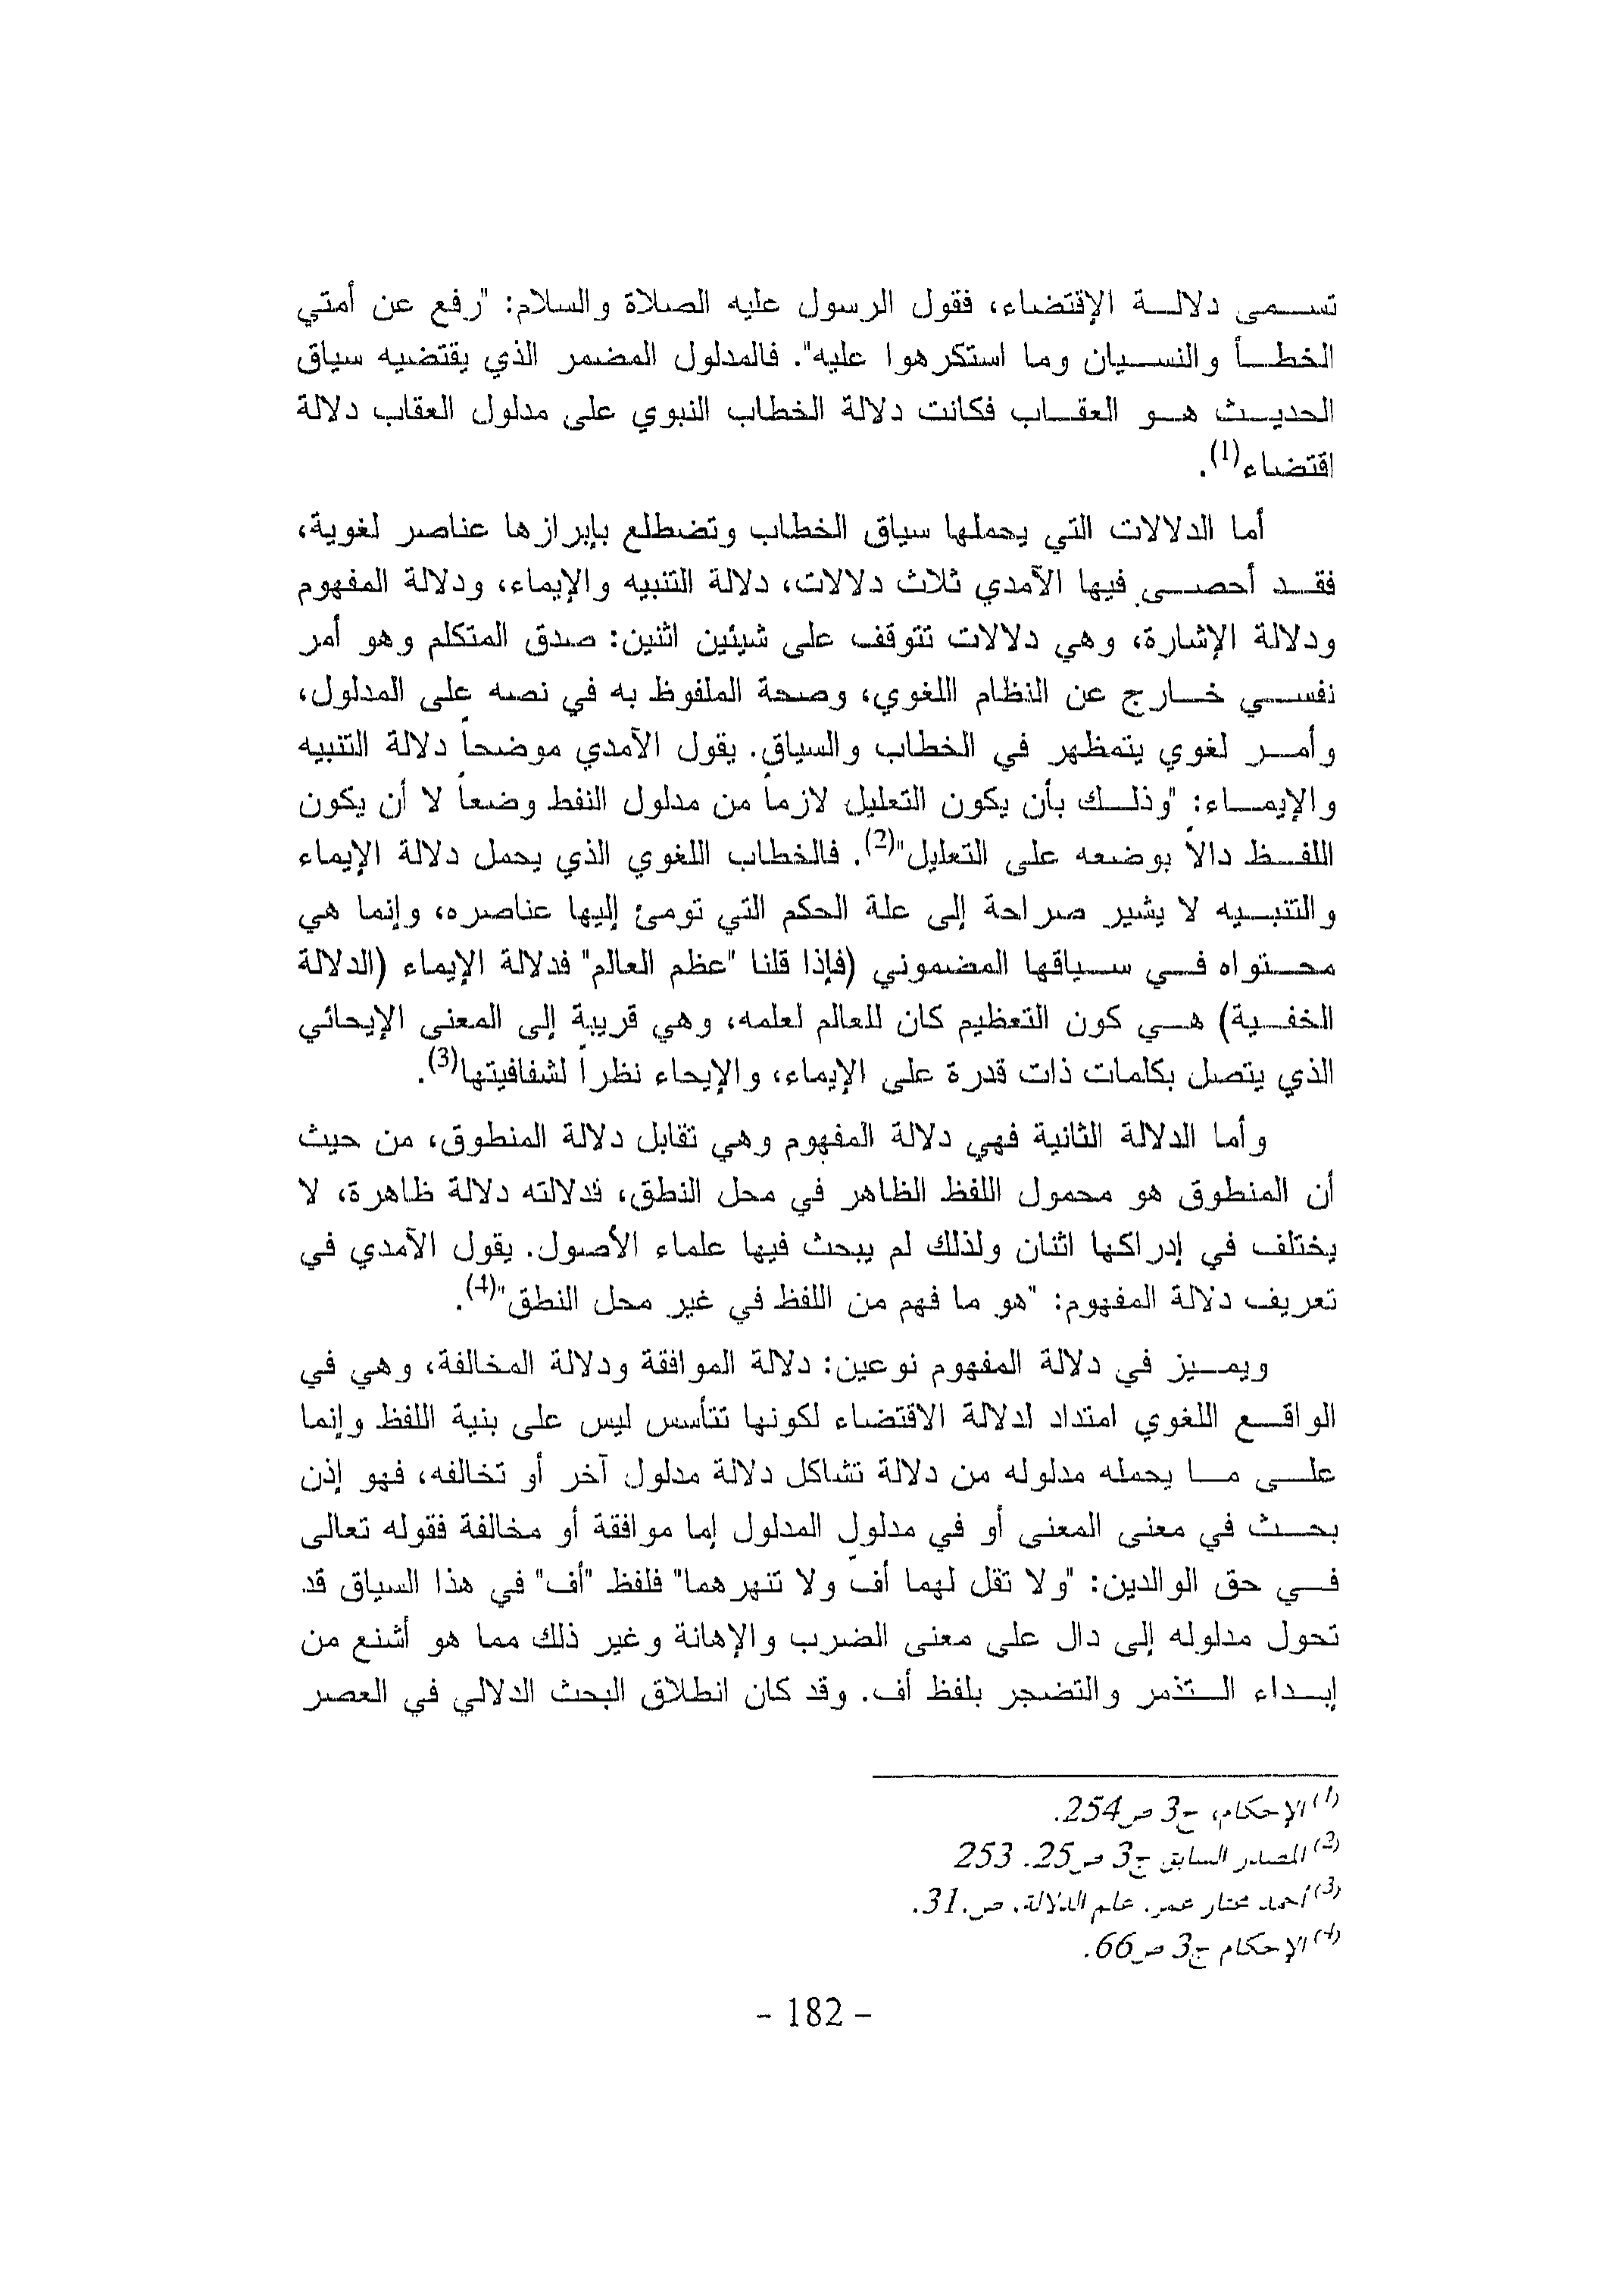 تسمى دلالة الإقتضاء، فقول الرسول عليه الصلاة والسلام: "رفع عن أمتي
الخطأ والنسيان وما استكرهوا عليه". فالمدلول المضمر الذي يقتضيه سياق
الحديث هو العقاب فكانت دلالة الخطاب النبوي على مدلول العقاب دلالة
اقتضاء(1).
أما الدلالات التي يحملها سياق الخطاب وتضطلع بإبرازها عناصر لغوية،
فقد أحصى فيها الآمدي ثلاث دلالات، دلالة التنبيه والإيماء، ودلالة المفهوم
ودلالة الإشارة، وهي دلالات تتوقف على شيئين اثنين: صدق المتكلم وهو أمر
نفسي خارج عن النظام اللغوي، وصحة الملفوظ به في نصه على المدلول،
وأمر لغوي يتمظهر في الخطاب والسياق. يقول الآمدي موضحاً دلالة التنبيه
والإيماء: "وذلك بأن يكون التعليل لازماً من مدلول النفط وضعاً لا أن يكون
اللفظ دالاً بوضعه على التعليل"(2). فالخطاب اللغوي الذي يحمل دلالة الإيماء
والتنبيه لا يشير صراحة إلى علة الحكم التي تومئ إليها عناصره، وإنما هي
محتواه في سياقها المضموني (فإذا قلنا "عظم العالم" فدلالة الإيماء (الدلالة
الخفية) هي كون التعظيم كان للعالم لعلمه، وهي قريبة إلى المعنى الإيحائي
الذي يتصل بكلمات ذات قدرة على الإيماء، والإيحاء نظراً لشفافيتها(3).
وأما الدلالة الثانية فهي دلالة المفهوم وهي تقابل دلالة المنطوق، من حيث
أن المنطوق هو محمول اللفظ الظاهر في محل النطق، فدلالته دلالة ظاهرة، لا
يختلف في إدراكها اثنان ولذلك لم يبحث فيها علماء الأصول. يقول الآمدي في
تعريف دلالة المفهوم: "هو ما فهم من اللفظ في غير محل النطق"(4).
ويميز في دلالة المفهوم نوعين: دلالة الموافقة ودلالة المخالفة، وهي في
الواقع اللغوي امتداد لدلالة الاقتضاء لكونها تتأسس ليس على بنية اللفظ وإنما
على ما يحمله مدلوله من دلالة تشاكل دلالة مدلول آخر أو تخالفه، فهو إذن
بحث في معنى المعنى أو في مدلول المدلول إما موافقة أو مخالفة فقوله تعالى
في حق الوالدين: "ولا تقل لهما أفٍ ولا تنهرهما" فلفظ "أف" في هذا السياق قد
تحول مدلوله إلى دال على معنى الضرب والإهانة وغير ذلك مما هو أشنع من
إبداء التذمر والتضجر بلفظ أف. وقد كان انطلاق البحث الدلالي في العصر
(1) الإحكام، ج3 ص254.
(2) المصدر السابق ج3 ص25. 253
(3) أحمد مختار عمر. علم الدلالة. ص.31.
(4) الإحكام ج3 ص66.
- 182 -